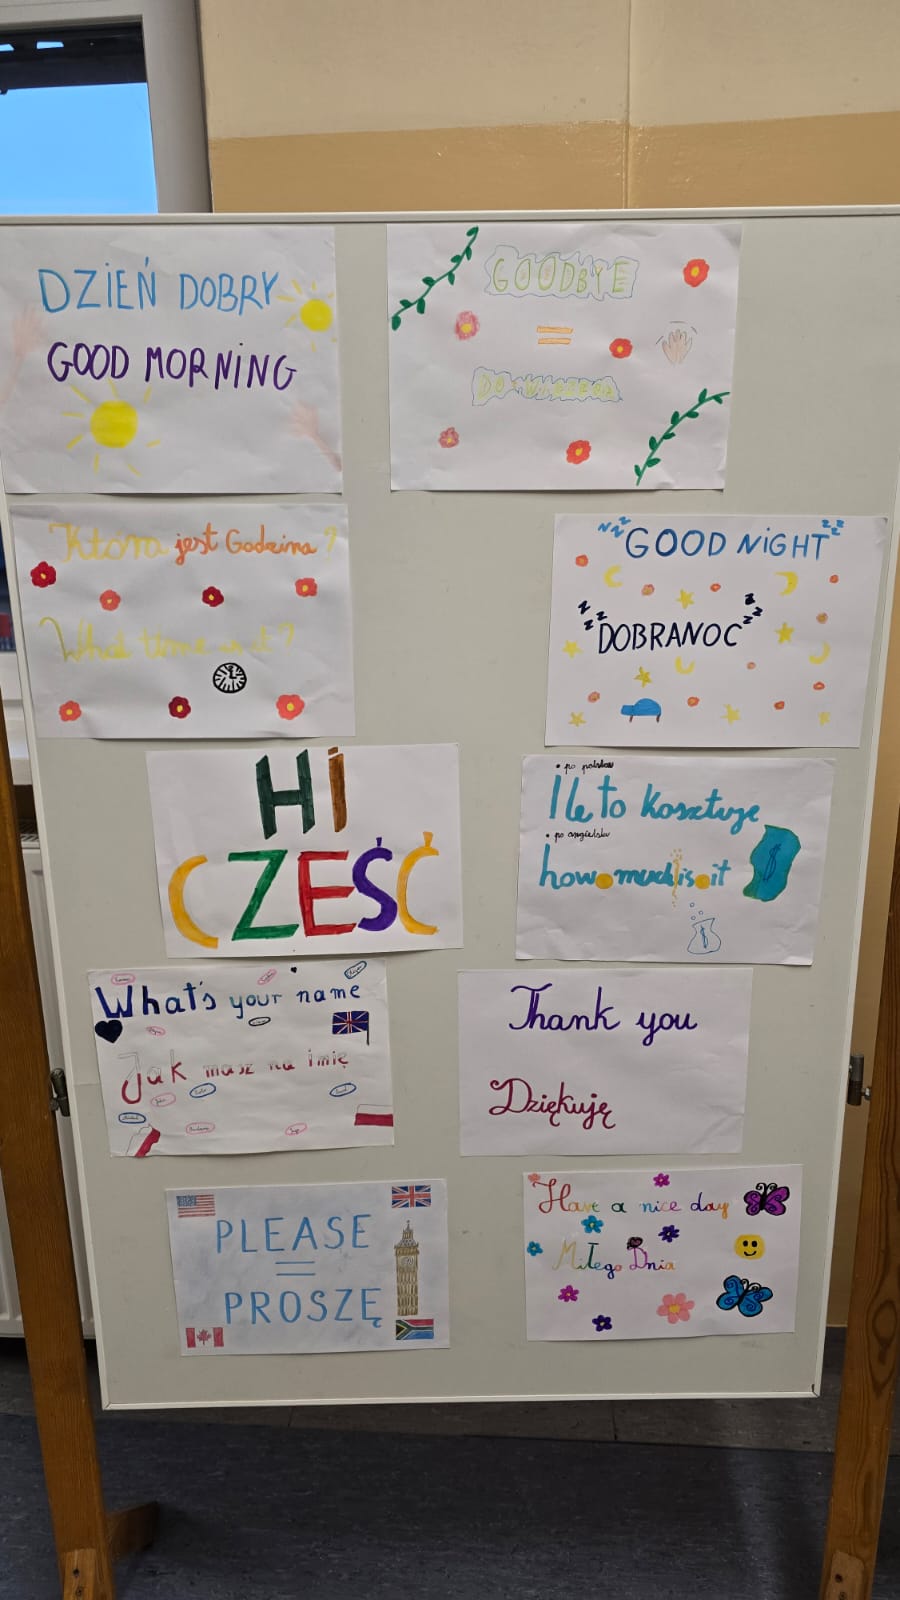 DZIEŃ DOBRY
GOOD MORNING
GOODBYE
=
DO WIDZENIA
Która jest Godzina?
What time is it?
zzz GOOD NiGHT zzz
zzz DOBRANOC zzz
Hi
CZEŚĆ
• po polsku
Ile to kosztuje
• po angielsku
how much is it
$
$
What's your name
Jak masz na imię
Thank you
Dziękuję
PLEASE
=
PROSZĘ
Have a nice day
Miłego Dnia